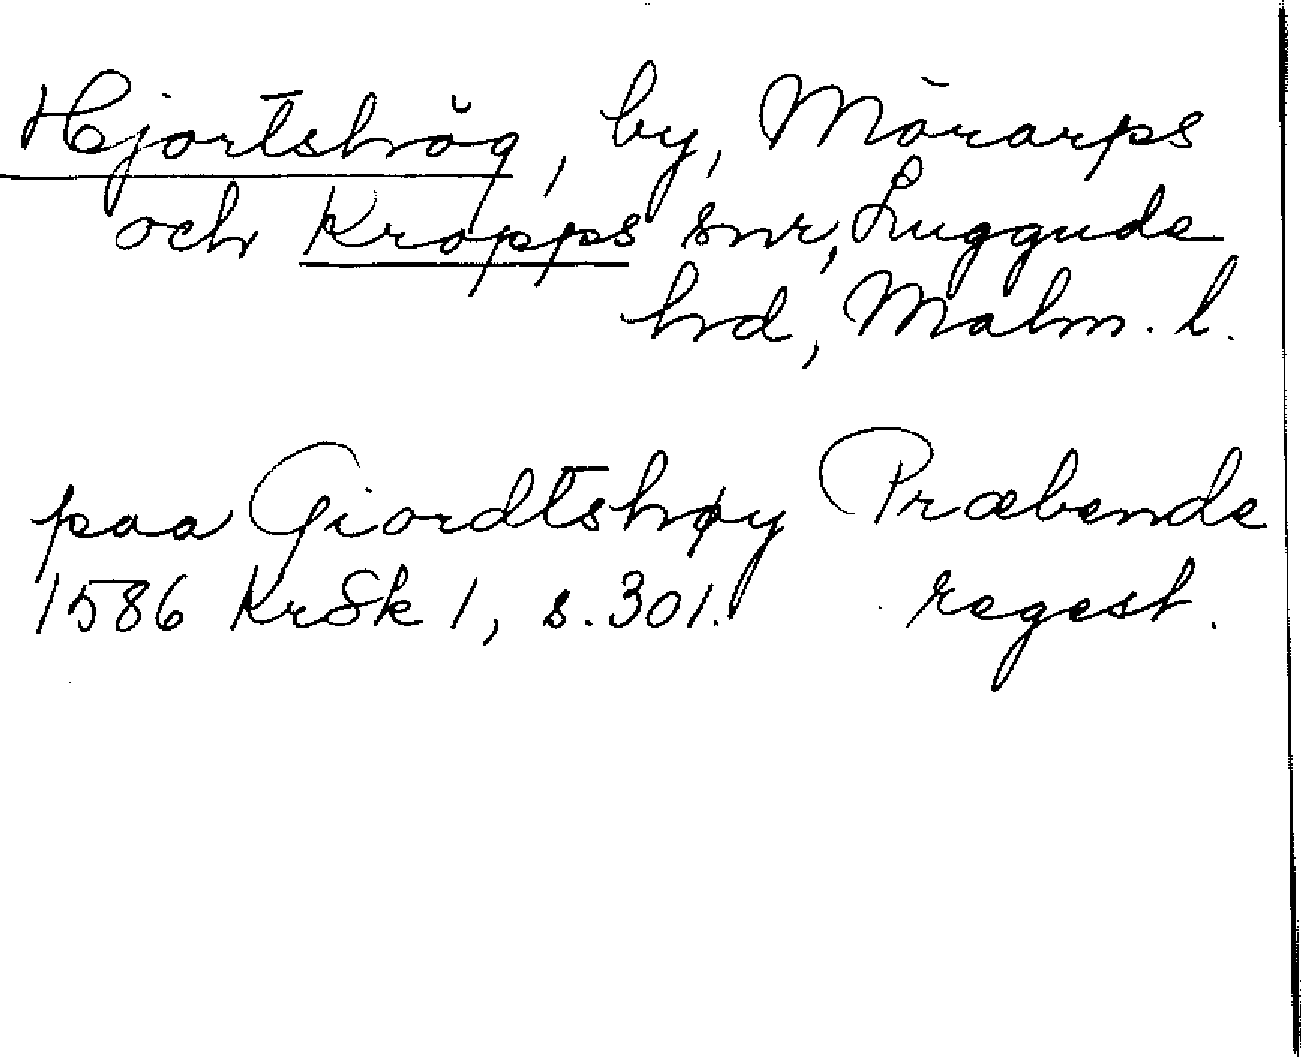 Hjortshög, by, Mörarps
och Kropps snr, Luggude
hrd, Malm. l.
paa Giordtshøy Præbende
1586 KrSk 1, s. 301. regest.